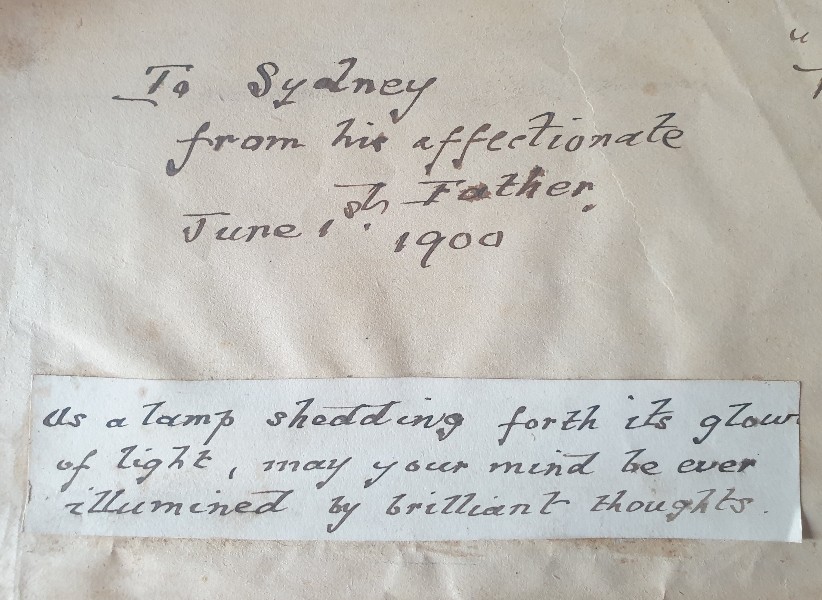 To Sydney
from his affectionate
Father.
June 1st. 1900
As a lamp shedding forth its glow
of light, may your mind be ever
illumined by brilliant thoughts.